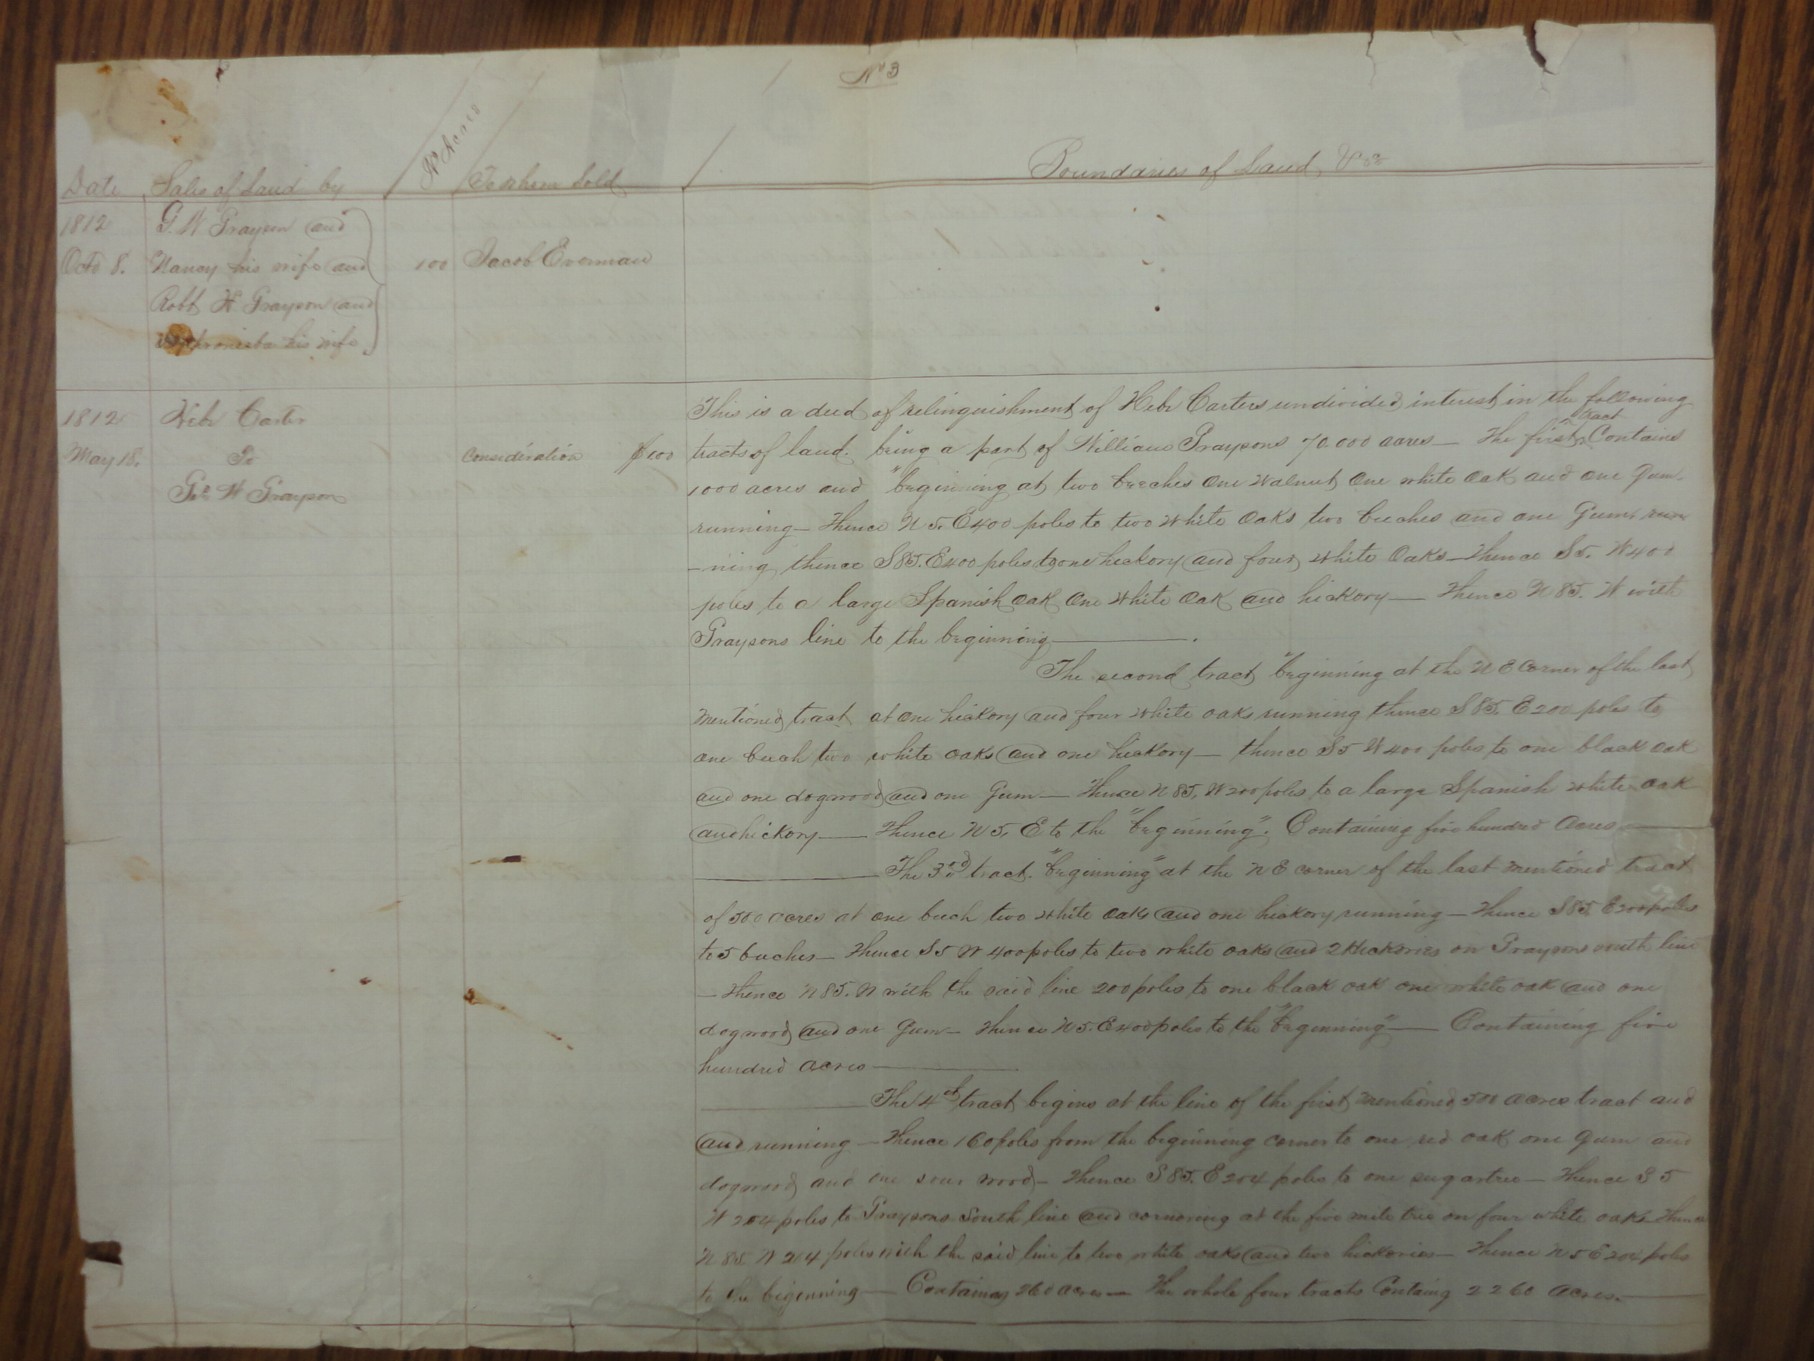 No 3
Date
Sales of Land by
No Acres
To whom Sold
Boundaries of Land, &c
1812
G. W Grayson and
Octo 8.
Nancy his wife and
100
Jacob Everman
Robt H Grayson and
his wife
1812
Hebe Carter
May 18.
To
Consideration $100
Geo W Grayson
This is a deed of relinquishment of Hebe Carters undivided interest in the following
tracts of land. being a part of William Graysons 70.000 acres — The first tract Contains
1000 acres and "beginning at two beeches One Walnut One white Oak and one Gum
running — Thence N 5. E 400 poles to two white Oaks two beeches and one Gum run
-ning thence S 85. E 400 poles to one hickory and four white Oaks — Thence S 5. W 400
poles to a large Spanish Oak One White Oak and hickory — Thence N 85. W with
Graysons line to the beginning ———.
The second tract beginning at the N E Corner of the last
mentioned tract at one hickory and four white oaks running thence S 85. E 200 poles to
one beech two white oaks and one hickory — thence S 5 W 400 poles to one black oak
and one dogwood and one Gum — Thence N 85. W 200 poles to a large Spanish white oak
and hickory — Thence N 5. E to the "beginning". Containing five hundred acres —
The 3rd tract. "beginning" at the N E corner of the last mentioned tract
of 500 acres at one beech two white Oaks and one hickory running — Thence S 85. E 200 poles
to 5 beeches — Thence S 5 W 400 poles to two white oaks and 2 hickories on Graysons south line
— Thence N 85. W with the said line 200 poles to one black oak one white oak and one
dogwood and one Gum — Thence N 5. E 400 poles to the "beginning" — Containing five
hundred acres —
The 4th tract begins at the line of the first mentioned 500 acres tract and
and running — Thence 160 poles from the beginning corner to one red oak one gum and
dogwood and one sour wood — Thence S 85. E 204 poles to one sugartree — Thence S 5
W 204 poles to Graysons South line and cornering at the five mile tree on four white oaks Thence
N 85. W 204 poles with the said line to two white oaks and two hickories — Thence N 5 E 204 poles
to the beginning — Containing 260 acres — The whole four tracts Containg 2260 acres. —